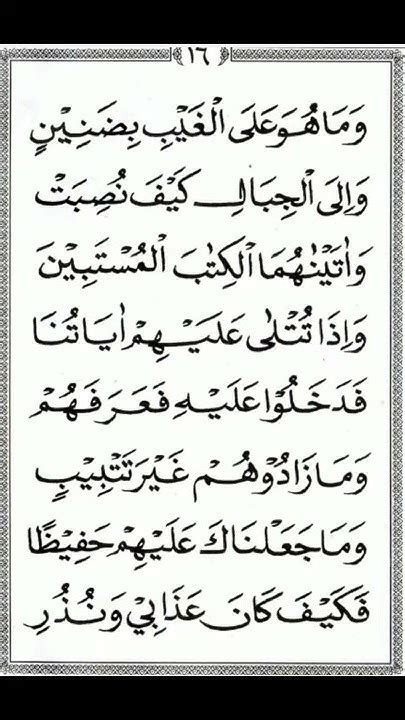 ١٦
وَمَا هُوَ عَلَى الْغَيْبِ بِضَنِيْنٍ
وَاِلَى الْجِبَالِ كَيْفَ نُصِبَتْ
وَاٰتَيْنٰهُمَا الْكِتٰبَ الْمُسْتَبِيْنَ
وَاِذَا تُتْلٰى عَلَيْهِمْ اٰيَاتُنَا
فَدَخَلُوْا عَلَيْهِ فَعَرَفَهُمْ
وَمَا زَادُوْهُمْ غَيْرَ تَتْبِيْبٍ
وَمَا جَعَلْنَاكَ عَلَيْهِمْ حَفِيْظًا
فَكَيْفَ كَانَ عَذَابِيْ وَنُذُرِ